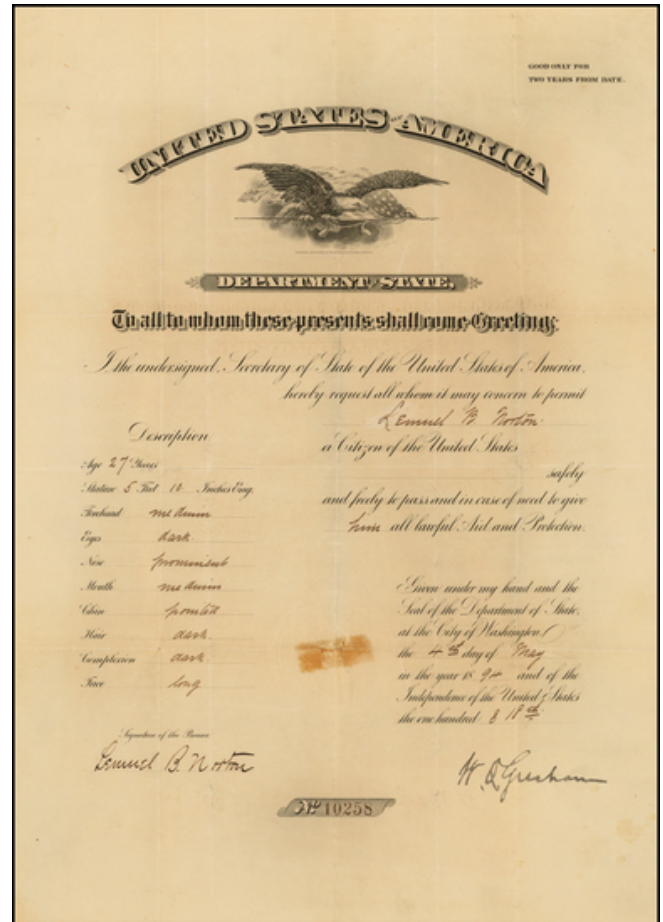 GOOD ONLY FOR
TWO YEARS FROM DATE.
UNITED STATES OF AMERICA
DEPARTMENT OF STATE,
To all to whom these presents shall come Greeting:
I the undersigned, Secretary of State of the United States of America,
hereby request all whom it may concern to permit
Lemuel B Norton
a Citizen of the United States
safely
and freely to pass and in case of need to give
him all lawful Aid and Protection.
Description
Age 27 Years
Stature 5 Feet 10 Inches Eng.
Forehead medium
Eyes dark
Nose prominent
Mouth medium
Chin pointed
Hair dark.
Complexion dark
Face long
Signature of the Bearer
Lemuel B. Norton
Given under my hand and the
Seal of the Department of State,
at the City of Washington,
the 4th day of May
in the year 18 94 and of the
Independence of the United States
the one hundred & 18th.
W. Q. Gresham
No 10258